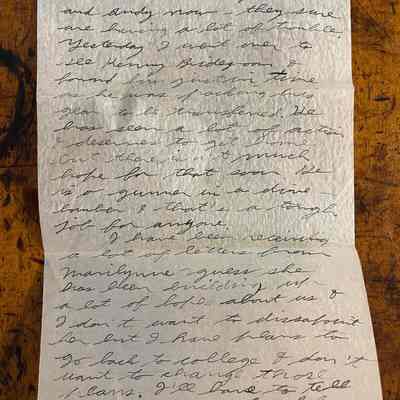 and Andy now – they sure
are having a lot of trouble.
Yesterday I went over to
see Kenny Bridegroom &
found him just in time
as he was packing his
gear to be transferred. He
has seen a lot of action
& deserves to get home
but there isn't much
hope for that soon. He
is a gunner in a dive-
bomber & that is a tough
job for anyone.
I have been receiving
a lot of letters from
Marilynne & guess she
has been building up
a lot of hope about us &
I don't want to dissapoint
her but I have plans to
go back to college & don't
want to change those
plans. I'll have to tell